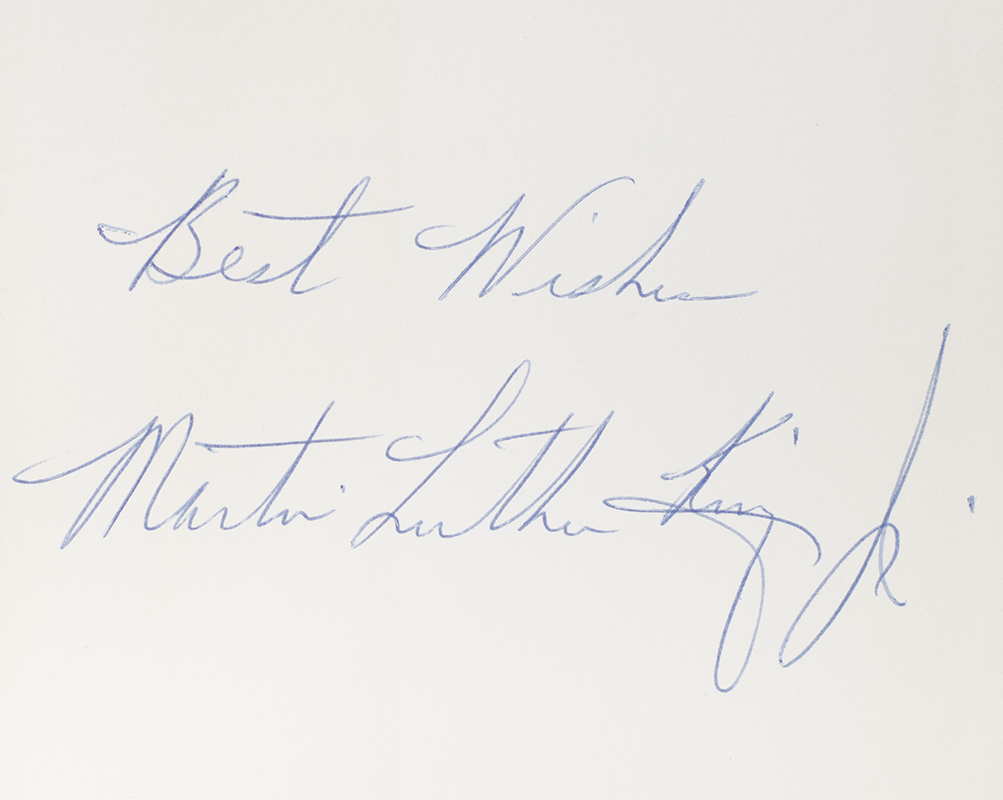 Best Wishes
Martin Luther King Jr.